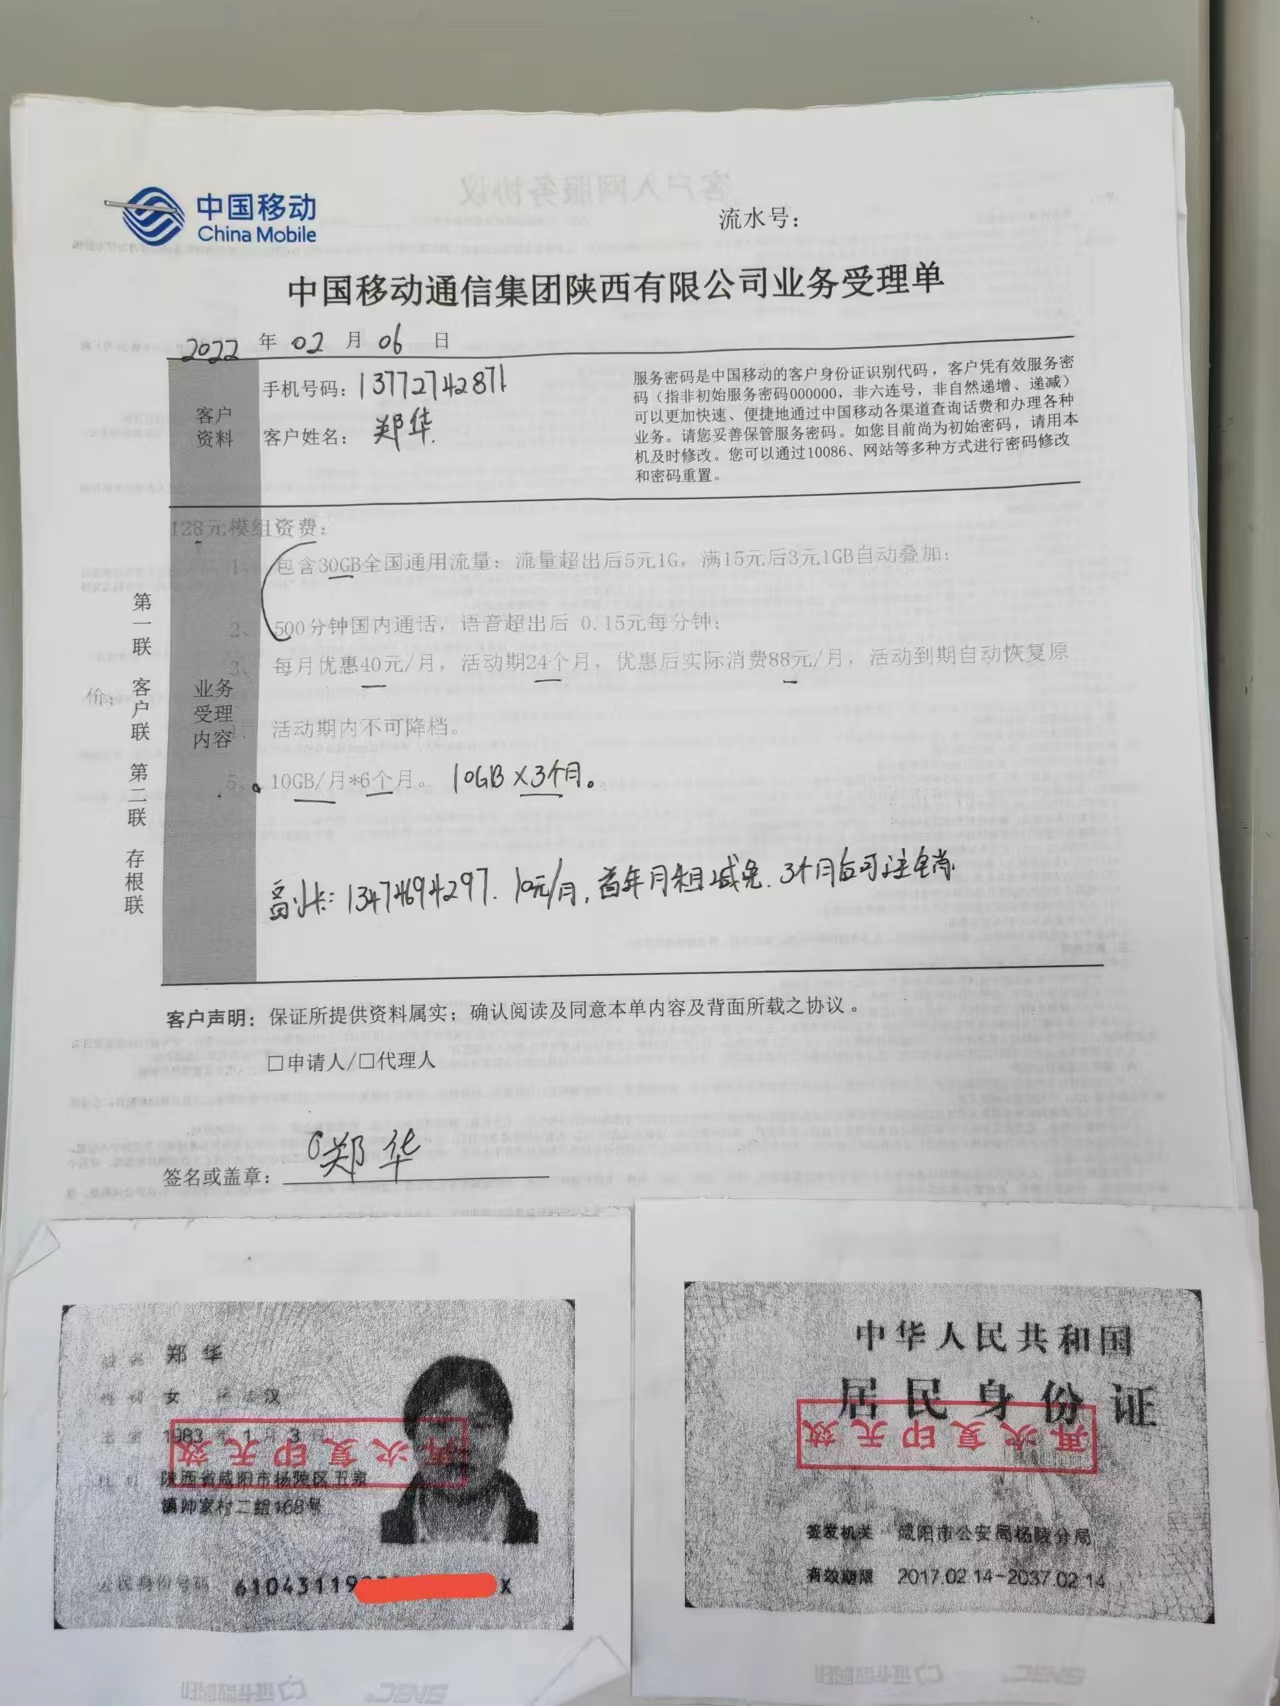 中国移动
China Mobile
流水号：
中国移动通信集团陕西有限公司业务受理单
2022 年 02 月 06 日
客户
资料
手机号码：13772742871
客户姓名：郑华
服务密码是中国移动的客户身份证识别代码，客户凭有效服务密
码（指非初始服务密码000000，非六连号，非自然递增、递减）
可以更加快速、便捷地通过中国移动各渠道查询话费和办理各种
业务。请您妥善保管服务密码。如您目前尚为初始密码，请用本
机及时修改。您可以通过10086、网站等多种方式进行密码修改
和密码重置。
第一联 客户联 第二联 存根联
业务
受理
内容
128元模组资费：
1、包含30GB全国通用流量；流量超出后5元1G，满15元后3元1GB自动叠加；
2、500分钟国内通话，语音超出后 0.15元每分钟；
3、每月优惠40元/月，活动期24个月，优惠后实际消费88元/月，活动到期自动恢复原
价；
4、活动期内不可降档。
5、10GB/月*6个月。 10GB×3个月。
副卡：13474694297. 10元/月，首年月租减免. 3个月后可注销.
客户声明：保证所提供资料属实；确认阅读及同意本单内容及背面所载之协议。
□申请人/□代理人
签名或盖章：郑华
姓名 郑华
性别 女 民族 汉
出生 1983 年 1 月 3 日
住址 陕西省咸阳市杨陵区五泉
镇帅家村二组168号
公民身份号码 610431198 X
再次复印无效
中华人民共和国
居民身份证
再次复印无效
签发机关 咸阳市公安局杨陵分局
有效期限 2017.02.14-2037.02.14